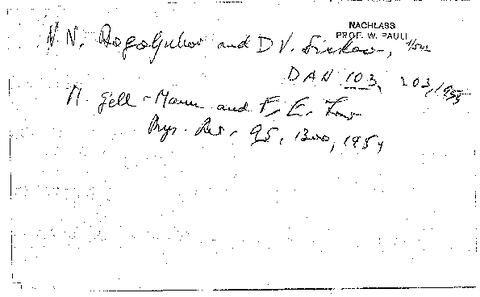 NACHLASS
PROF. W. PAULI
N N. Bogoljubov and D V. Sirkov,
DAN 103, 203, 1955
M. Gell-Mann and F. E. Low
Phys. Rev. 95, 1300, 1954